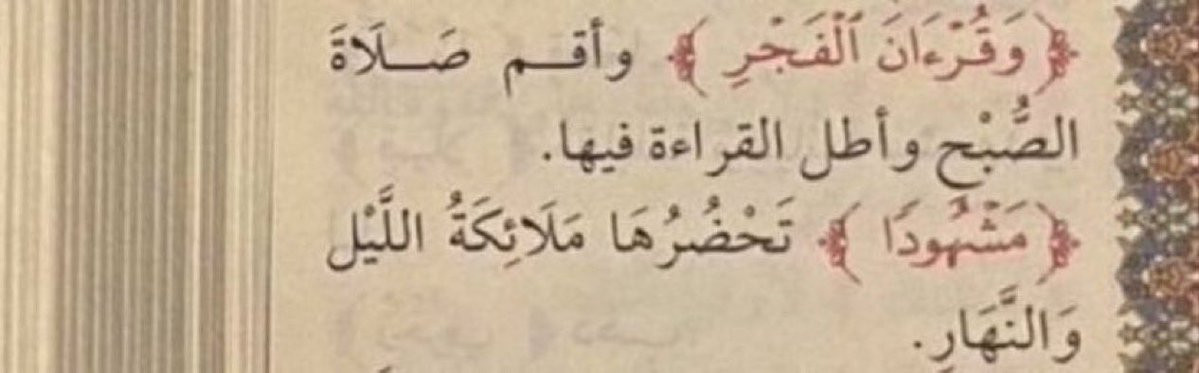 ﴿وَقُرْءَانَ ٱلْفَجْرِ﴾ وأقم صَلَاةَ
الصُّبْحِ وأطل القراءة فيها.
﴿مَشْهُودًا﴾ تَحْضُرُهَا مَلَائِكَةُ اللَّيْلِ
وَالنَّهَارِ.